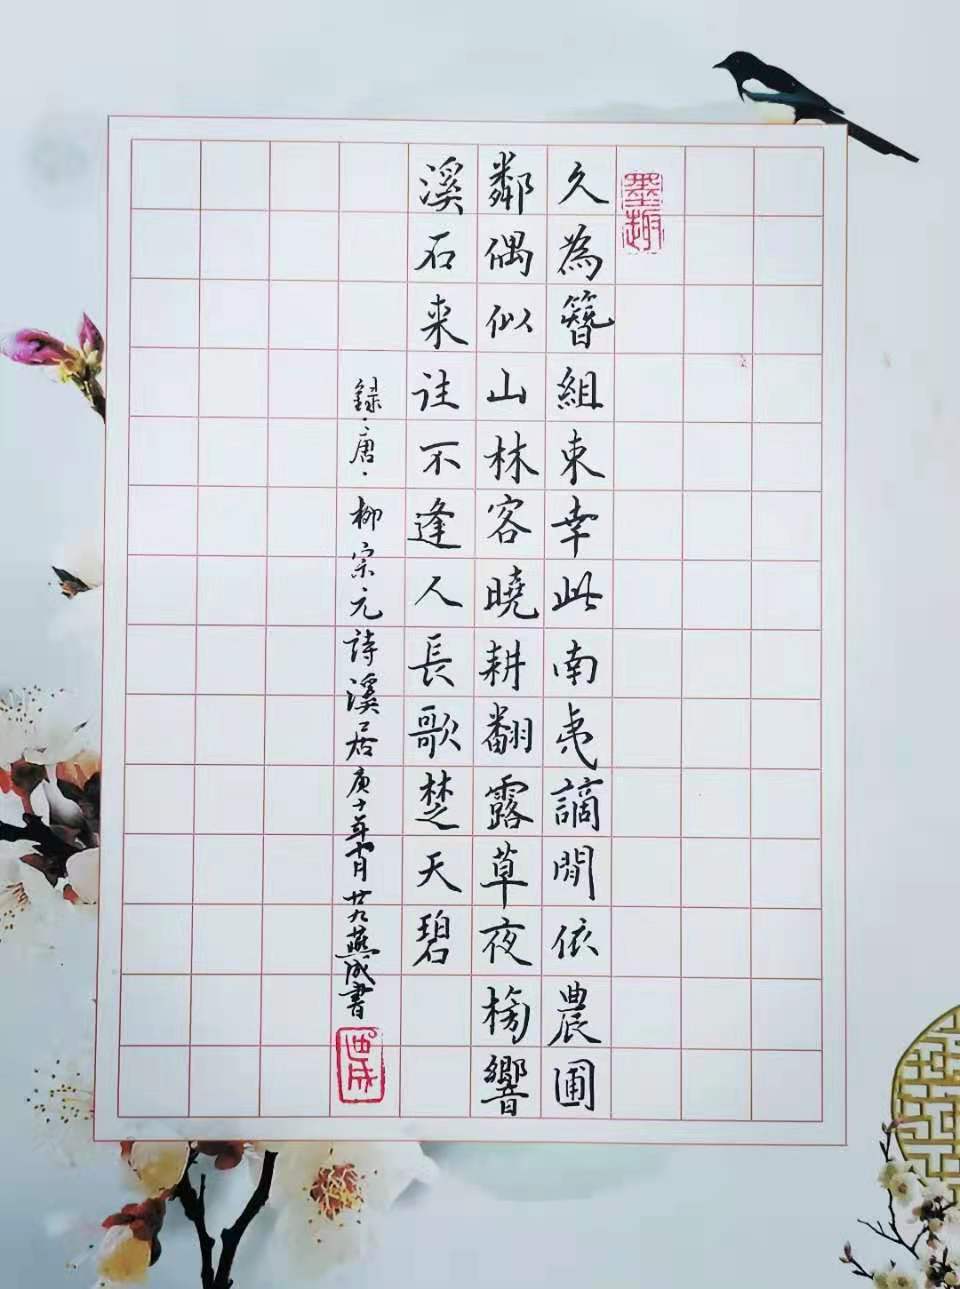 墨趣
久為簪組束幸此南夷謫閒依農圃
鄰偶似山林客曉耕翻露草夜榜響
溪石来往不逢人長歌楚天碧
録·唐·柳宗元詩溪居